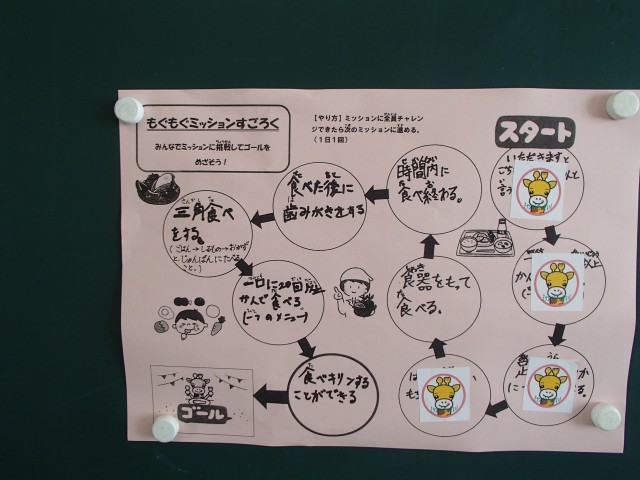 もぐもぐミッションすごろく
みんなでミッションに挑戦してゴールを
めざそう！
【やり方】ミッションに全員チャレン
ジできたら次のミッションに進める。
（１日１回）
スタート
いただきますと
言う
食器をもって
食べる。
時間内に
食べ終わる。
食べた後に
歯みがきをする
三角食べ
をする。
(ごはん→しるもの→おかず
と、じゅんばんにたべる
こと。)
一口に20回以上
かんで食べる
食べキリンする
ことができる
ゴール